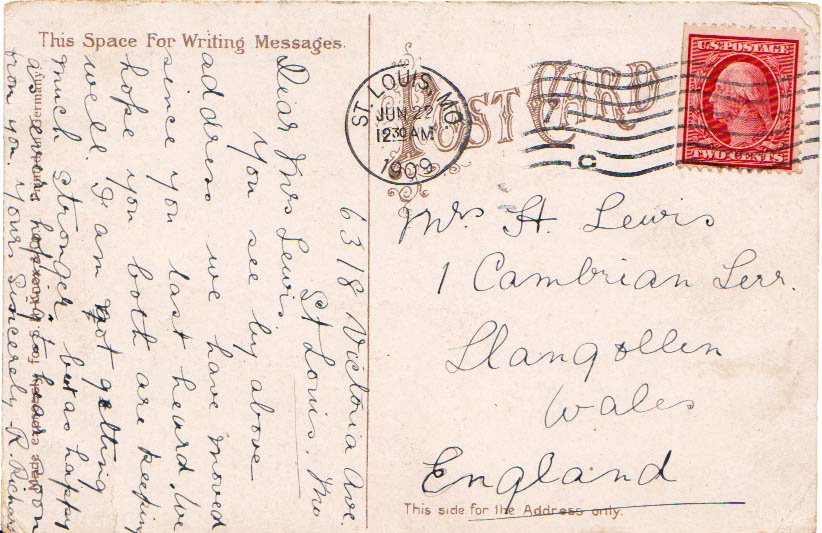 This Space For Writing Messages.
POST CARD
ST. LOUIS, MO.
JUN 22
12 30 AM
1909
C
U.S. POSTAGE
TWO CENTS
6318 Victoria Ave.
St Louis. Mo
Dear Mrs Lewis
You see by above
address we have moved
since you last heard. We
hope you both are keeping
well. I am not getting
much stronger. but as happy
as ever. hoping to hear soon
from you. Yours Sincerely R. Richard
Mrs H. Lewis
1 Cambrian Terr.
Llangollen
Wales
England
This side for the Address only.